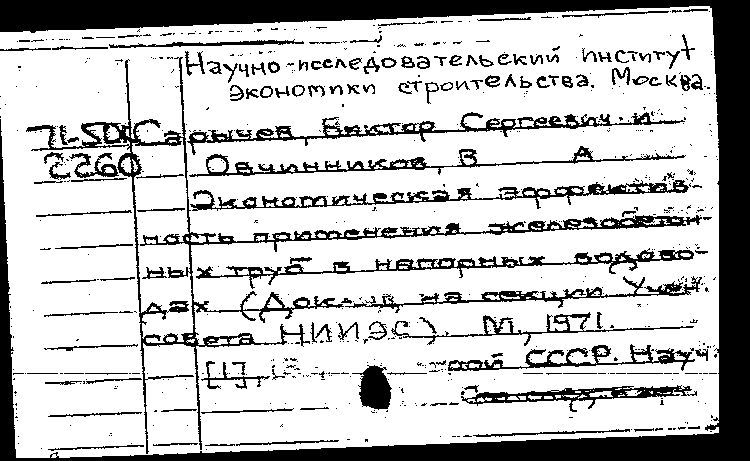 Научно-исследовательский институт
экономики строительства. Москва.
71-500 Сарычев, Виктор Сергеевич и
2260 Овчинников, В А
Экономическая эффектив-
ность применения железобетон-
ных труб в напорных водово-
дах (Доклад на секции Учен.
совета НИИЭС). М., 1971.
[1], строй СССР. Науч.